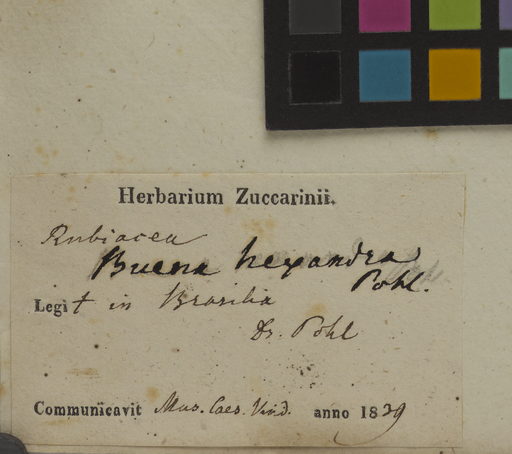 Herbarium Zuccarinii.
Rubiacea
Buena hexandra
Pohl.
Legit in Brasilia
Dr. Pohl
Communicavit Mus. Caes. Vind. anno 1839